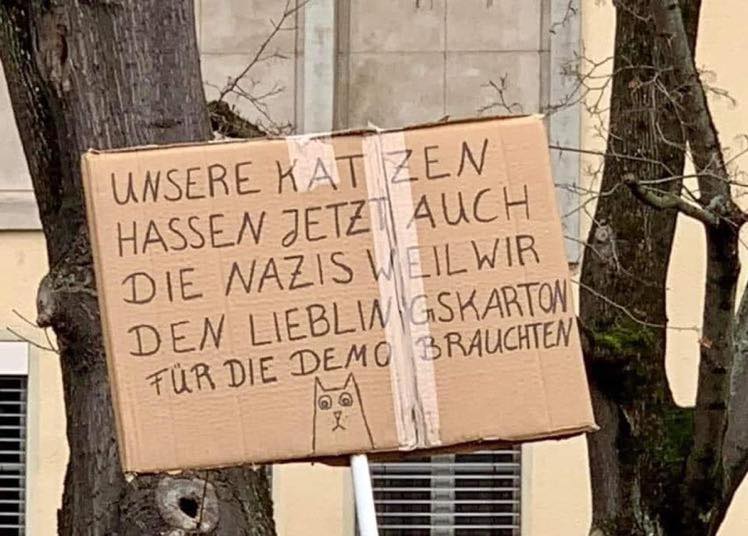 UNSERE KATZEN
HASSEN JETZT AUCH
DIE NAZIS WEIL WIR
DEN LIEBLINGSKARTON
FÜR DIE DEMO BRAUCHTEN